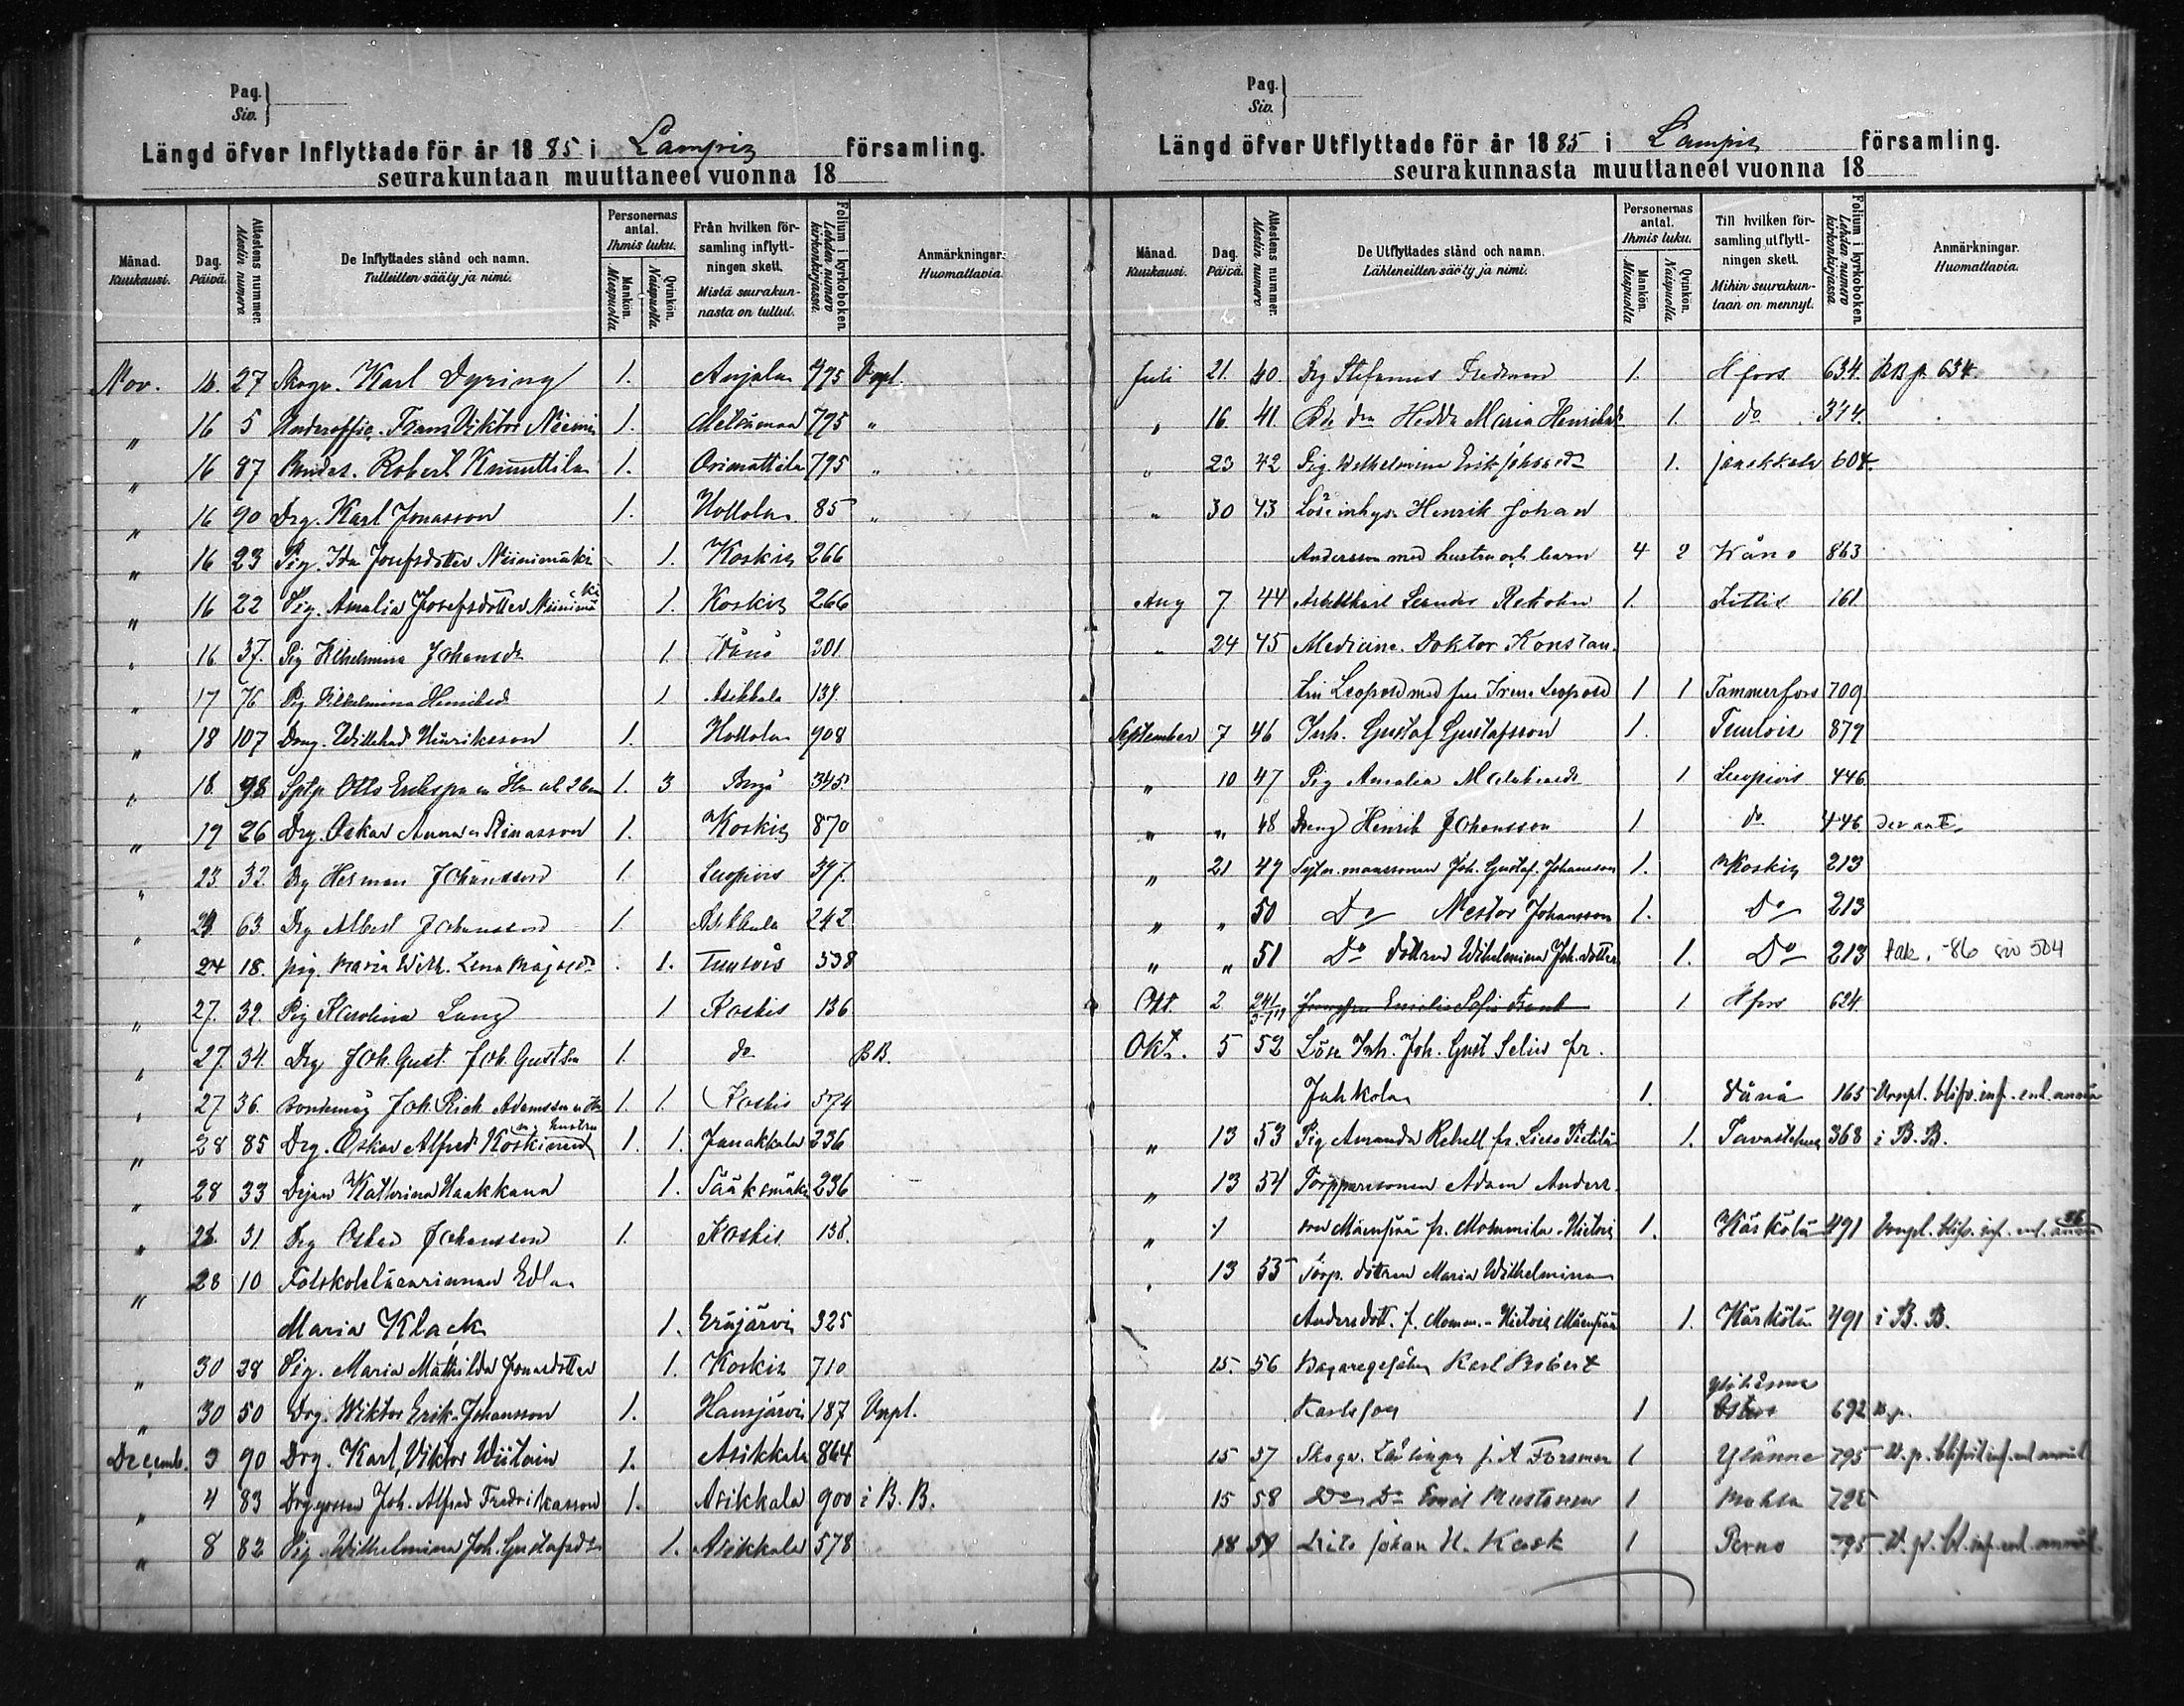 Pag.
Siv.
Längd öfver Inflyttade för år 1885 i Lampis församling.
seurakuntaan muuttaneet vuonna 18
Månad. Kuukausi.
Dag. Päivä.
Attestens nummer. Mestin numero
De Inflyttades stånd och namn. Tulleitten sääty ja nimi.
Personernas antal. Ihmis luku.
Mankön. Miespuolia
Qvinkön. Naispuolia
Från hvilken församling inflyttningen skett. Mistä seurakunnasta on tullut.
Folium i kyrkoboken. Lehden numero kirkonkirjassa.
Anmärkningar. Huomattavia.
Nov. 16. 27 Skogv. Karl Dyring 1. Anjala 795 Vapl.
" 16 5 Underoffic. Frans Viktor Niemi 1. 795 "
" 16 87 Robert Knuuttila 1. Orimattila 795 "
" 16 90 Drg. Karl Jonasson 1. Hollola 85 "
" 16 23 Pig. Ida Josefsdotter Niinimäki 1. Koskis 266
" 16 22 Pig. Amalia Josefsdotter Niinimäki 1. Koskis 266
" 16 37. Pig Vilhelmina Johansdr 1. Vånå 201
" 17 76 Pig Vilhelmina Henriksd 1 Asikkala 139
" 18 107 Dreng. Willehad Henriksson 1. Hollola 908
" 18 98 Otto Eriksson 1. 3 Borgå 345.
" 19 26 Drg. Oskar Anna Stinasson 1. Koskis 870
" 23 32. Drg Herman Johansson 1. Luopiois 397.
" 24 63 Drg Albert Johansson 1. Asikkala 242
24 18. pig. Maria Wilh. Lena Majasdr 1. Tuulois 538
" 27. 39. Pig Karolina Lang 1 Koskis 136
" 27. 34. Drg Joh. Gust. Joh. Gustsn 1. do BB.
" 27 36. Joh. Rich. Adamsson 1. 1. Koskis 574
" 28 85 Drg. Oskar Alfred Koskinen m. hustru 1. 1. Janakkala 236
" 28 33 Dejan Kathrina Haakkana 1. Sääksmäki 236
" 28. 31. Drg Oskar Johansson 1. Koskis 138.
" 28 10 Folkskolelärarinnan Edla
Maria Klack 1. Eräjärvi 325
" 30 28 Pig. Maria Mathilda Jonasdotter 1. Koskis 710
" 30 50 Drg. Wiktor Erik Johansson 1. Hausjärvi 187 Vapl.
Decemb. 3 90 Drg. Karl Viktor Wiitain 1. Asikkala 864
" 4 83 Drg.gossen Joh. Alfred Fredriksson 1. Asikkala 900 i B. B.
" 8 82 Pig. Wilhelmina Joh. Gustafsdr 1. Asikkala 578
Pag.
Siv.
Längd öfver Utflyttade för år 1885 i Lampis församling.
seurakunnasta muuttaneet vuonna 18
Månad. Kuukausi.
Dag. Päivä.
Attestens nummer. Mestin numero.
De Utflyttades stånd och namn. Lähteneitten sääty ja nimi.
Personernas antal. Ihmis luku.
Mankön. Miespuolia
Qvinkön. Naispuolia
Till hvilken församling utflyttningen skett. Mihin seurakuntaan on mennyt.
Folium i kyrkoboken. Lehden numero kirkonkirjassa.
Anmärkningar. Huomattavia.
Juli 21. 40. Drg Stefanus Fredman 1. Hfors. 634. BB p. 634.
" 16. 41. Hedda Maria Henriksdr 1. do 344.
" 23 42 Pig Wilhelmina Erik Johansdr 1. Janakkala 604
" 30 43 Löse inhys. Henrik Johan
Andersson med hustru och barn 4 2 Wånå 863
Aug 7. 44 Arbetskarl Leander Rekola 1. Jittis 161
" 24 45 Medicine Doktor Konstan-
tin Leopold med fru Irene Leopold 1 1 Tammerfors 709
September 7 46 Inh. Gustaf Gustafsson 1. Tuulois 879
" 10 47 Pig Amalia 1 Luopiois 446
" " 48 Dreng Henrik Johansson 1 do 446
" 21 49 Joh. Gustaf Johansson 1. Koskis 213
" " 50 Do Nestor Johansson 1. Do 213
" " 51 Do dottren Wilhelmina Joh.dotter 1. Do 213 -86 siv 504
Okt 2 241 Jungfru Emilia Sofia 1 Hfors 624
Okt. 5 52 Löse Inh. Joh. Gust Selin fr.
Jahkola 1. Vånå 165
" 13 53 Pig Amanda Rehell fr. Lieso Pietilä 1. Tavastehus 368 i B. B.
" 13 54 Torpparesonen Adam Anders-
son Mäenpää fr. Mommila-Hietois 1. Kärkölä 491
" 13 55 Torp. dottren Maria Wilhelmina
Andersdott. f. Momm.-Hietois Mäenpää 1. Kärkölä 491 i B. B.
15. 56 Bagaregesällen Karl Robert
Karlsson 1 692
15 57 Skogv. Lärlingen J. A Forsman 1 Ylänne 795
15 58 Do Do Emil Mustonen 1 795
18 59 Johan H. Kask 1 Perno 795